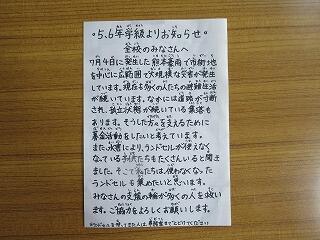 ・5.6年学級よりお知らせ・
全校のみなさんへ
7月4日に発生した熊本豪雨で市街地
を中心に広範囲で大規模な災害が発生
しています。現在も多くの人たちの避難生活
が続いています。なかには道路が寸断
され、孤立状態が続いている集落も
あります。そうした方々を支えるために
募金活動をしたいと考えています。
また、水害により、ランドセルが使えなく
なっている子供たちもたくさんいると聞き
ました。そこで私たちは、使わなくなった
ランドセルも集めたいと思います。
みなさんの支援の輪が多くの人を救い
ます。ご協力をよろしくお願いします。